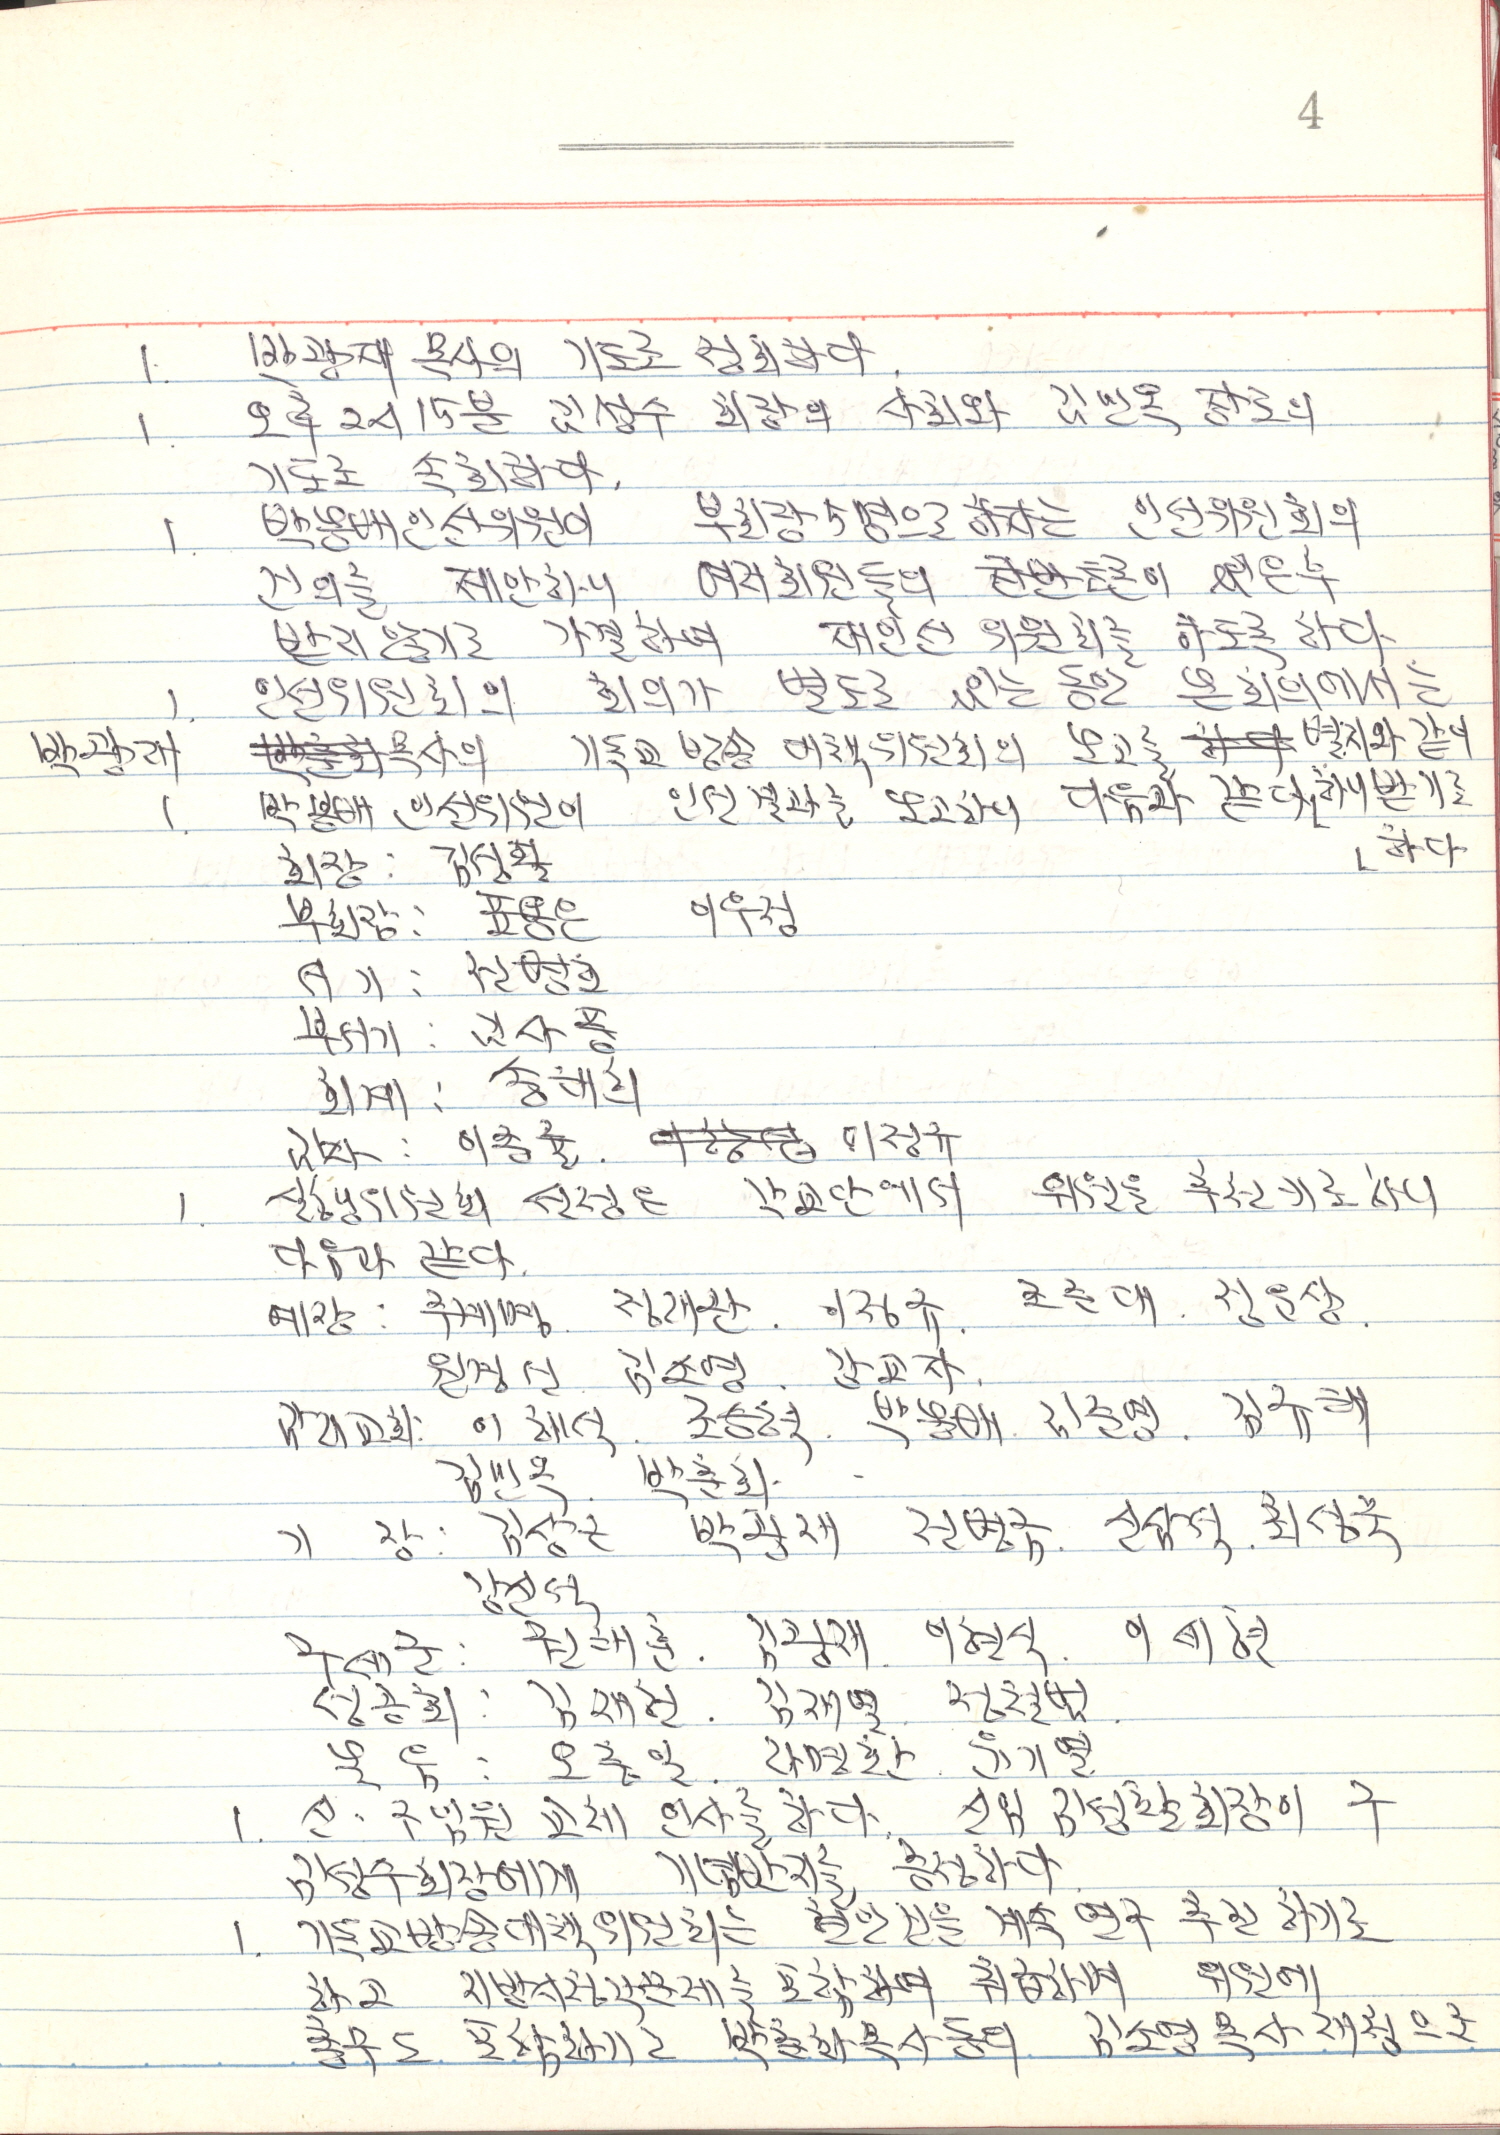 4
1. 박광재 목사의 기도로 정회하다.
1. 오후 2시 15분 김성수 회장의 사회와 김민옥 장로의
기도로 속회하다.
1. 박봉배 인선위원이 부회장 5명으로 하자는 인선위원회의
건의를 제안하니 여러회원들의 찬반토론이 있은후
받지 않기로 가결하며 재인선 위원회를 하도록 하다
1. 인선위원회의 회의가 별도로 있는 동안 본회의에서는
박광재 박춘화 목사의 기독교 방송 대책위원회의 보고를 하다 별지와 같이
1. 박봉배 인선위원이 인선결과를 보고하니 다음과 같다 하니 받기로
하다
회장: 김성환
부회장: 표용은 이우정
서기: 신명호
부서기: 김사풍
회계: 송혜희
감사: 이종률. 이정규
1. 실행위원회 선정은 각교단에서 위원을 추천키로 하니
다음과 같다.
예장: 주계명. 정재환. 이정규. 조춘대. 정은상.
원경선 김소영. 강교자.
감리교회: 이혜석. 조승혁. 박봉배. 김준영. 김규태
김민옥. 박춘희.
기 장: 김상근 박광재 전병금. 신삼석. 최성묵
강신석
구세군: 권태훈. 김광재. 이현식. 이세현
성공회: 김재헌. 김재열 정철범.
복음: 오충일. 라명환. 유기열
1. 신·구임원 교체 인사를 하다. 신임 김성환회장이 구
김성수회장에게 기념반지를 증정하다.
1. 기독교방송대책위원회는 현안건을 계속 연구 추진하기로
하고 지방자정악문제를 포함하여 취급하며 위원에
총무도 포함하기로 박춘화목사 동의 김소영목사 재청으로